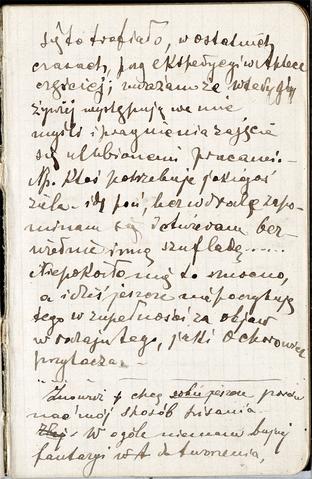 się to trafiało, w ostatnich
czasach, przy ekspedycyi w Aptece
częściej; uważam że wtedy gdy
żywiej występują we mnie
myśli i pragnienia zajęcia
się ulubionemi pracami. -
Np. ktoś potrzebuje jakiegoś
zioła - idę poń, lecz w drodze zapo-
minam się i otwieram bez-
wiednie inną szufladę.....
Niepokoiło mię to mocno,
a i dziś jeszcze nie poczytuję
tego w zupełności za objaw
w rodzaju tego, jakie Ochorowicz
przytacza. -
Znowu chcę jeszcze
nad mój sposób pisania
W ogóle nie mam bujnej
fantazyi w tworzenia,